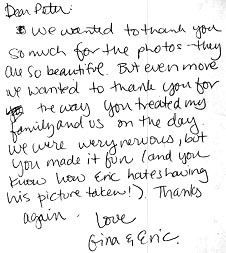 Dear Peter:
We wanted to thank you
so much for the photos - they
are so beautiful. But even more
we wanted to thank you for
the way you treated my
family and us on the day.
we were very nervous, but
you made it fun (and you
know how Eric hates having
his picture taken!). Thanks
again.
Love
Gina & Eric.